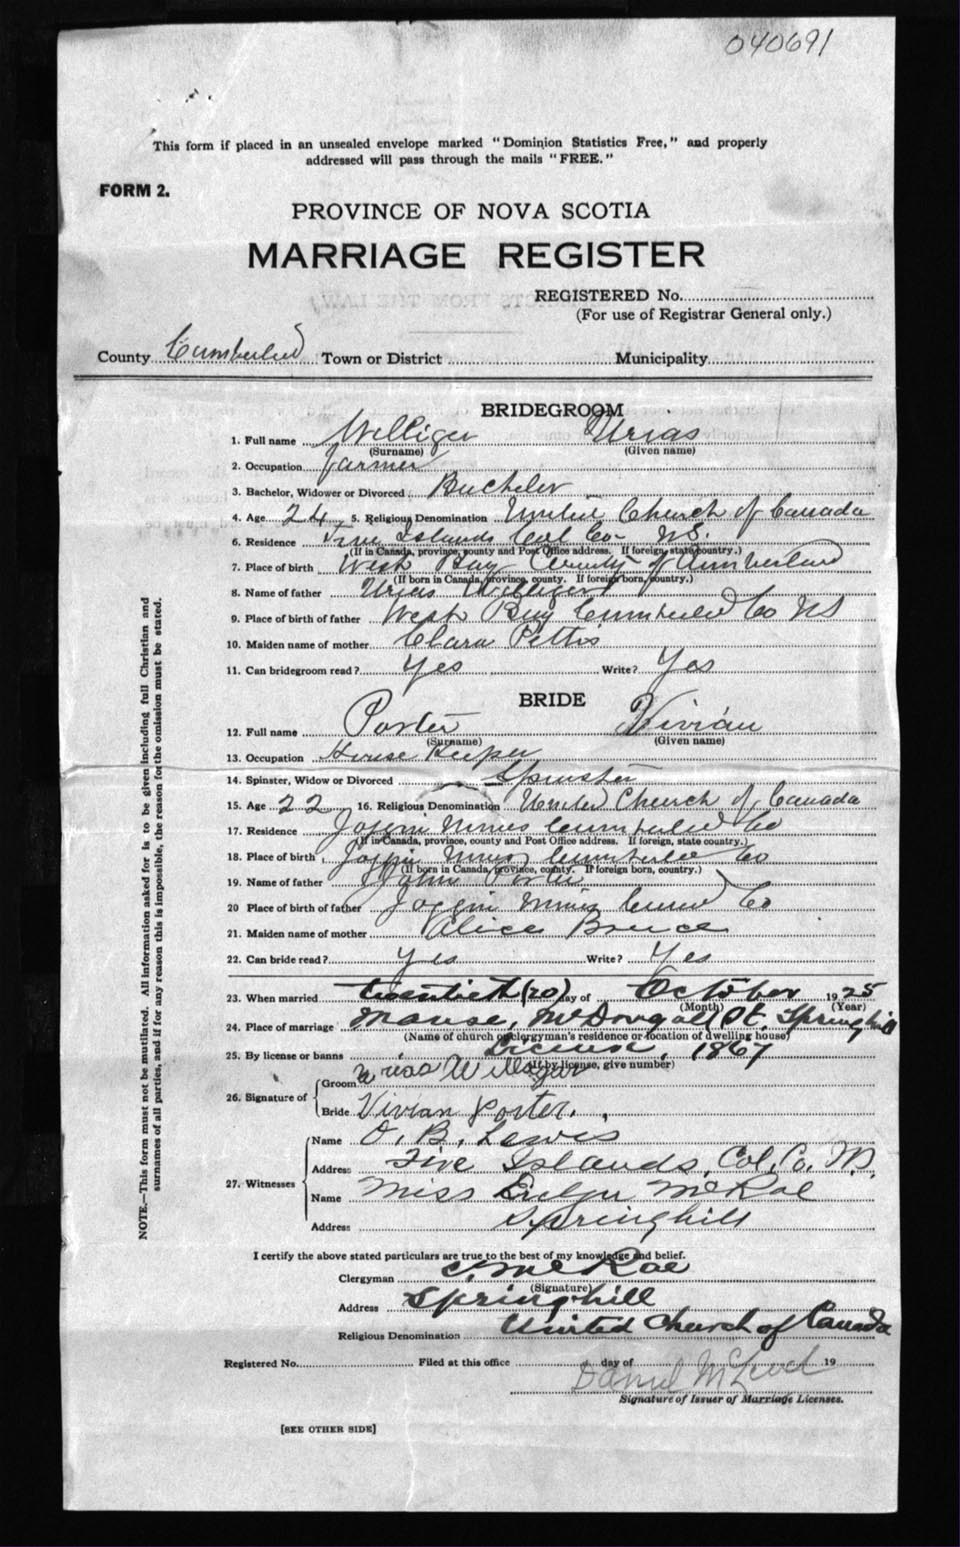 040691
This form if placed in an unsealed envelope marked "Dominion Statistics Free," and properly
addressed will pass through the mails "FREE."
FORM 2.
PROVINCE OF NOVA SCOTIA
MARRIAGE REGISTER
REGISTERED No.
(For use of Registrar General only.)
County Cumberland Town or District Municipality
BRIDEGROOM
1. Full name Williger Urias
(Surname) (Given name)
2. Occupation farmer
3. Bachelor, Widower or Divorced Bachelor
4. Age 24 5. Religious Denomination United Church of Canada
6. Residence Five Islands Col Co. NS.
(If in Canada, province, county and Post Office address. If foreign, state country.)
7. Place of birth West Bay County of Cumberland
(If born in Canada, province, county. If foreign born, country.)
8. Name of father Urias Williger
9. Place of birth of father West Bay Cumberland Co NS
10. Maiden name of mother Clara Pettis
11. Can bridegroom read? Yes Write? Yes
BRIDE
12. Full name Porter Vivian
(Surname) (Given name)
13. Occupation House Keeper
14. Spinster, Widow or Divorced Spinster
15. Age 22 16. Religious Denomination United Church of Canada
17. Residence Joggin Mines Cumberland Co
(If in Canada, province, county and Post Office address. If foreign, state country.)
18. Place of birth Joggin Mines Cumberland Co
(If born in Canada, province, county. If foreign born, country.)
19. Name of father John Porter
20 Place of birth of father Joggin Mines Cumb Co
21. Maiden name of mother Alice Bruce
22. Can bride read? Yes Write? Yes
23. When married twentieth (20) day of October 1925
(Month) (Year)
24. Place of marriage Manse, McDougall St, Springhill
(Name of church or clergyman's residence or location of dwelling house)
25. By license or banns License, 1867
(If by license, give number)
26. Signature of Groom Urias Williger
Bride Vivian Porter.
27. Witnesses Name O. B. Lewis
Address Five Islands, Col. Co. NS.
Name Miss Evelyn McRae
Address Springhill
I certify the above stated particulars are true to the best of my knowledge and belief.
Clergyman McRae
(Signature)
Address Springhill
Religious Denomination United Church of Canada
Registered No. Filed at this office day of 19
Daniel McLeod
Signature of Issuer of Marriage Licenses.
[SEE OTHER SIDE]
NOTE.—This form must not be mutilated. All information asked for is to be given including full Christian and
surnames of all parties, and if for any reason this is impossible, the reason for the omission must be stated.